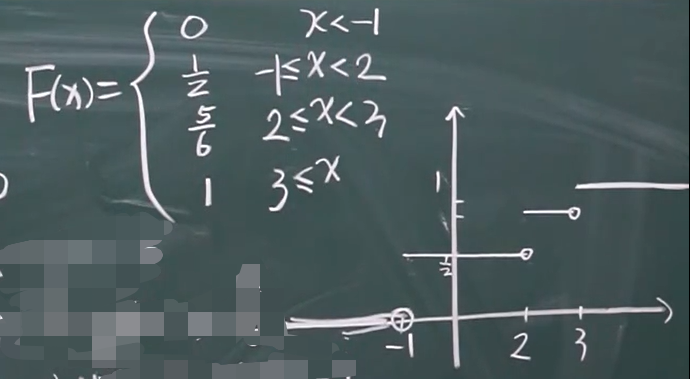 F(x)= { 0 x<-1
1/2 -1≤x<2
5/6 2≤x<3
1 3≤x
1
1/2
-1 2 3